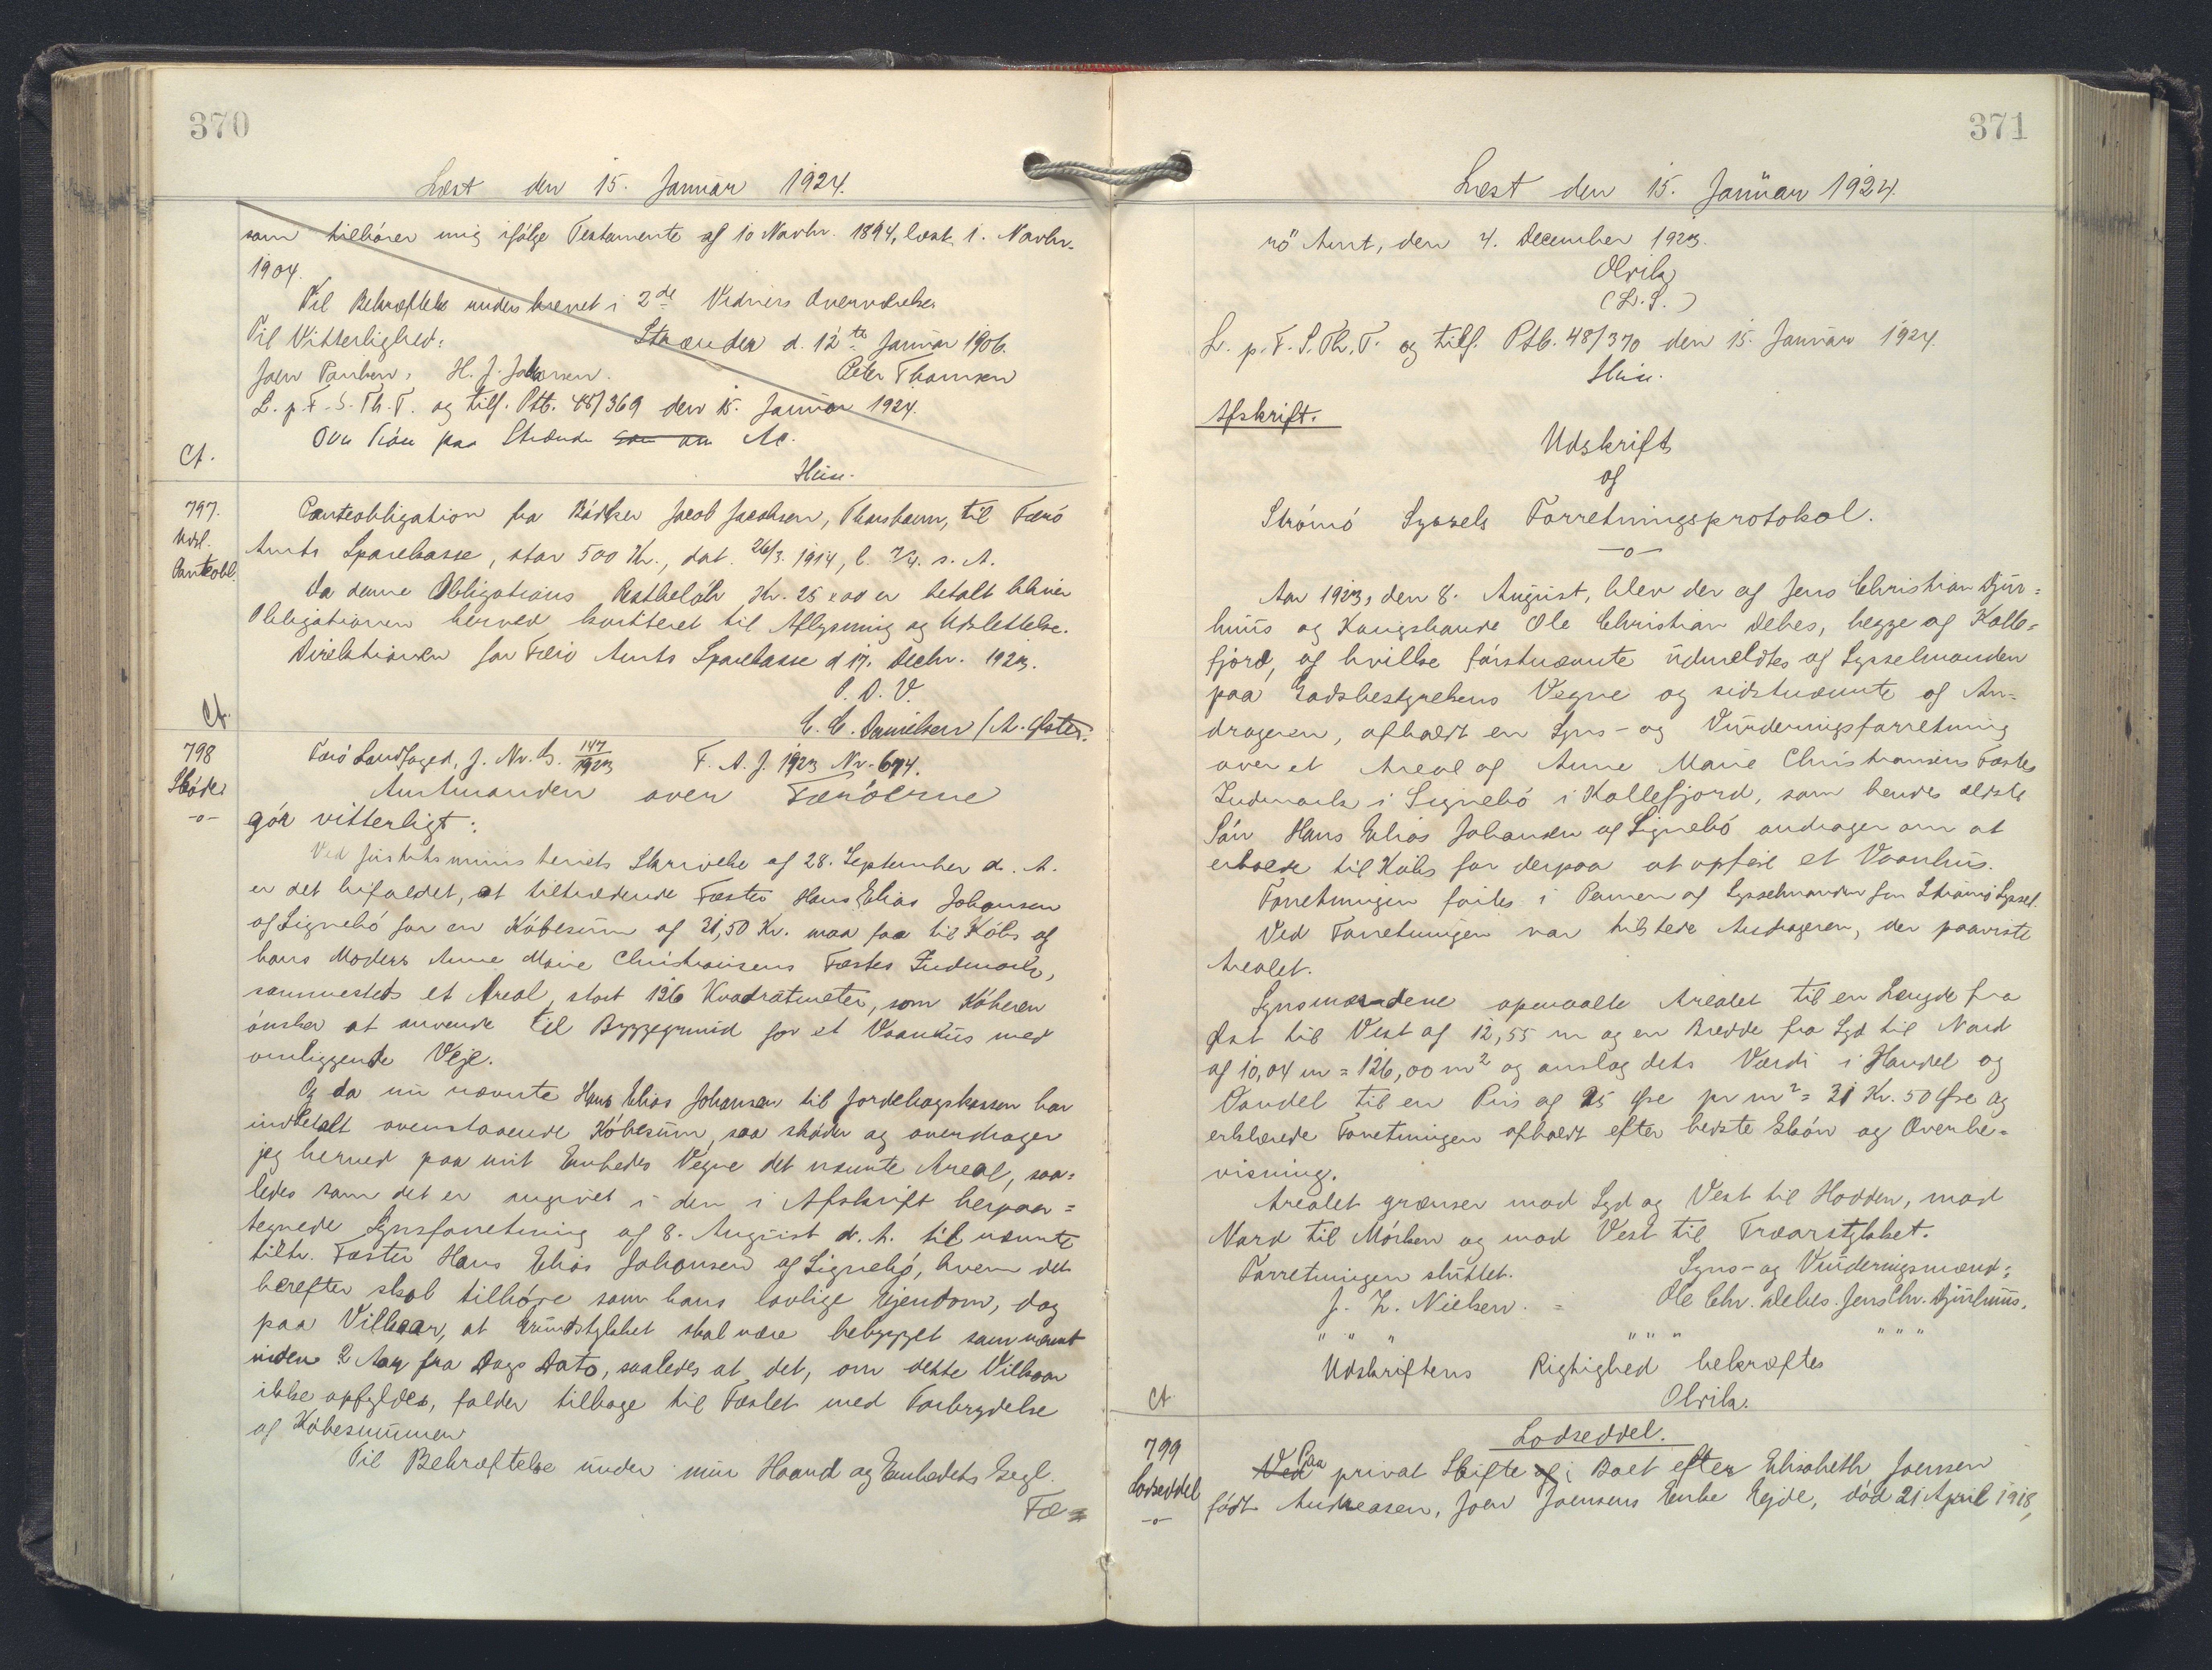 370
Læst den 15. Januar 1924.
som tilhører mig ifølge Testamente af 10 Novbr. 1894, læst 1. Novbr.
1904.
Til Bekræftelse underskrevet i 2de Vidners Overværelse.
Til Vitterlighed: Strænder d. 12te Januar 1906.
Joen Poulsen, H. J. Jacobsen. Peter Thomsen
L. p. F. S. Th. T. og tilf. Ptb. 48/369 den 15. Januar 1924.
paa Strænder
Ct.
797.
Udsl.
Panteobl.
Panteobligation fra Bødker Jacob Jacobsen, Thorshavn, til Færø
Amts Sparekasse, stor 500 Kr., dat. 26/3. 1914, l. 7/4. s. A.
Da denne Obligations Restbeløb Kr. 25 x 00 er betalt bliver
Obligationen herved kvitteret til Aflysning og Udslettelse.
Direktionen for Færø Amts Sparekasse d 17. Decbr. 1923.
P. D. V.
C. C. Danielsen / A.
Ct.
798
Skøde
-o-
Færø Landfoged, J. Nr. B. 147/1923 F. A. J. 1923 Nr. 694.
Amtmanden over Færøerne
gør vitterligt:
Ved Justitsministeriets Skrivelse af 28. September d. A.
er det bifaldet, at tiltrædende Fæster Hans Elias Johansen
af Signebø for en Købesum af 31,50 Kr. maa faa til Købs af
hans Moders Anne Marie Christiansens Fæstes Indmark,
sammesteds et Areal, stort 126 Kvadratmeter, som Køberen
ønsker at anvende til Byggegrund for et Vaanhus med
omliggende Veje.
Og da nu nævnte Hans Elias Johansen til Jordebogskassen har
indbetalt ovenstaaende Købesum, saa skøder og overdrager
jeg herved paa mit Embedes Vegne det nævnte Areal, saa=
ledes som det er angivet i den i Afskrift herpaa=
tegnede Synsforretning af 8. August d. A. til nævnte
tiltr. Fæster Hans Elias Johansen af Signebø, hvem det
herefter skal tilhøre som hans lovlige Ejendom, dog
paa Vilkaar, at Grundstykket skal være bebygget som nævnt
inden 2 Aar fra Dags Dato, saaledes at det, om dette Vilkaar
ikke opfyldes, falder tilbage til Fæstet med Forbrydelse
af Købesummen
Til Bekræftelse under min Haand og Embedets Segl.
Fæ=
371
Læst den 15. Januar 1924.
rø Amt, den 4. December 1923.
Olrik
(L. S.)
L. p. F. S. Th. T. og tilf. Ptb. 48/370 den 15. Januar 1924.
Afskrift.
Udskrift
af
Strømø Syssels Forretningsprotokol.
-o-
Aar 1923, den 8. August, blev der af Jens Christian Djur=
huus og Kongsbonde Ole Christian Debes, begge af Kolle=
fjord, af hvilke førstnævnte udmeldtes af Sysselmanden
paa Godsbestyrelsens Vegne og sidstnævnte af An=
drageren, afholdt en Syns- og Vurderingsforretning
over et Areal af Anne Marie Christiansens Fæstes
Indmark i Signebø i Kollefjord, som hendes ældste
Søn Hans Elias Johansen af Signebø andrager om at
erholde til Købs for derpaa at opføre et Vaanhus.
Forretningen førtes i Pennen af Sysselmanden for Strømø Syssel.
Ved Forretningen var tilstede Andrageren, der paaviste
Arealet.
Synsmændene opmaalte Arealet til en Længde fra
Øst til Vest af 12,55 m og en Bredde fra Syd til Nord
af 10,04 m = 126,00 m² og anslog dets Værdi i Handel og
Vandel til en Pris af 25 Øre pr m² = 31 Kr. 50 Øre og
erklærede Forretningen afholdt efter bedste Skøn og Overbe=
visning.
Arealet grænser mod Syd og Vest til Hodden, mod
Nord til Mørken og mod Vest til Træarstykket.
Forretningen sluttet. Syns- og Vurderingsmænd:
J. Z. Nielsen. = Ole Chr. Debes. Jens Chr. Djurhuus.
" " " " " " " " "
Udskriftens Rigtighed bekræftes
Olrik.
Ct
799
Lodseddel
-o-
Lodseddel.
Ved Paa privat Skifte af i Boet efter Elisabeth Joensen
født Andreasen, Joen Joensens Enke Ejde, død 21 April 1918,